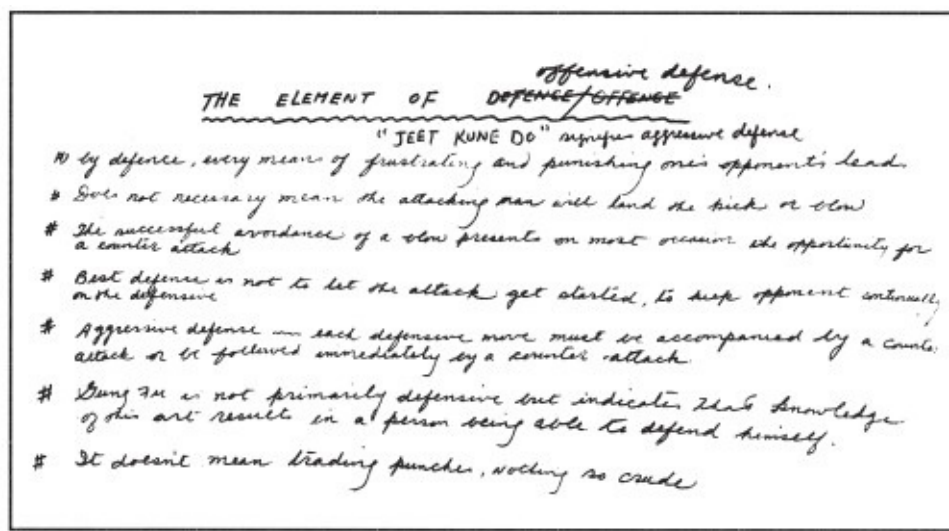 offensive defense.
THE ELEMENT OF DEFENCE/OFFENCE
"JEET KUNE DO" signifies aggressive defense
# by defence, every means of frustrating and punishing one's opponent's lead
# Does not necessary mean the attacking man will land the kick or blow
# The successful avoidance of a blow presents on most occasion the opportunity for
a counter attack
# Best defense is not to let the attack get started, to keep opponent continually
on the defensive
# Aggressive defense — each defensive move must be accompanied by a counter
attack or be followed immediately by a counter-attack
# Gung Fu is not primarily defensive but indicates that knowledge
of this art results in a person being able to defend himself.
# It doesn't mean trading punches, nothing so crude